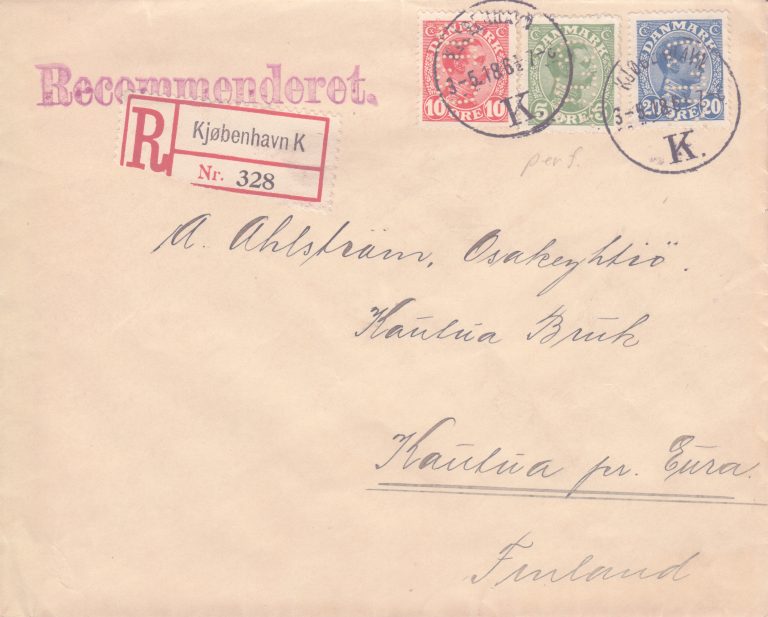 Recommenderet.
DANMARK
10 10
ØRE
DANMARK
5 5
ØRE
DANMARK
20 20
ØRE
KJØBENHAVN
3-5.18.6
K
3-5.18.6
K.
R
Kjøbenhavn K
Nr. 328
perf.
A. Ahlström, Osakeyhtiö.
Kautua Bruk
Kautua pr. Eura.
Finland